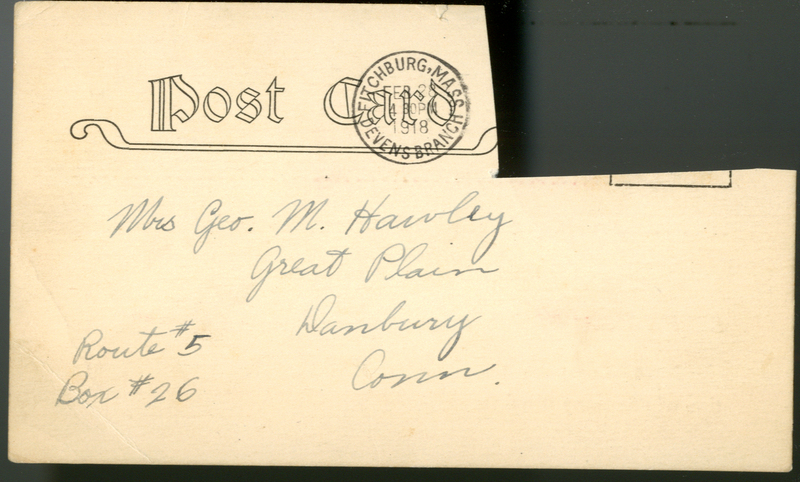 Post Card
FITCHBURG, MASS.
FEB 2
4 30PM
1918
DEVENS BRANCH
Mrs Geo. M. Hawley
Great Plain
Danbury
Conn.
Route #5
Box #26